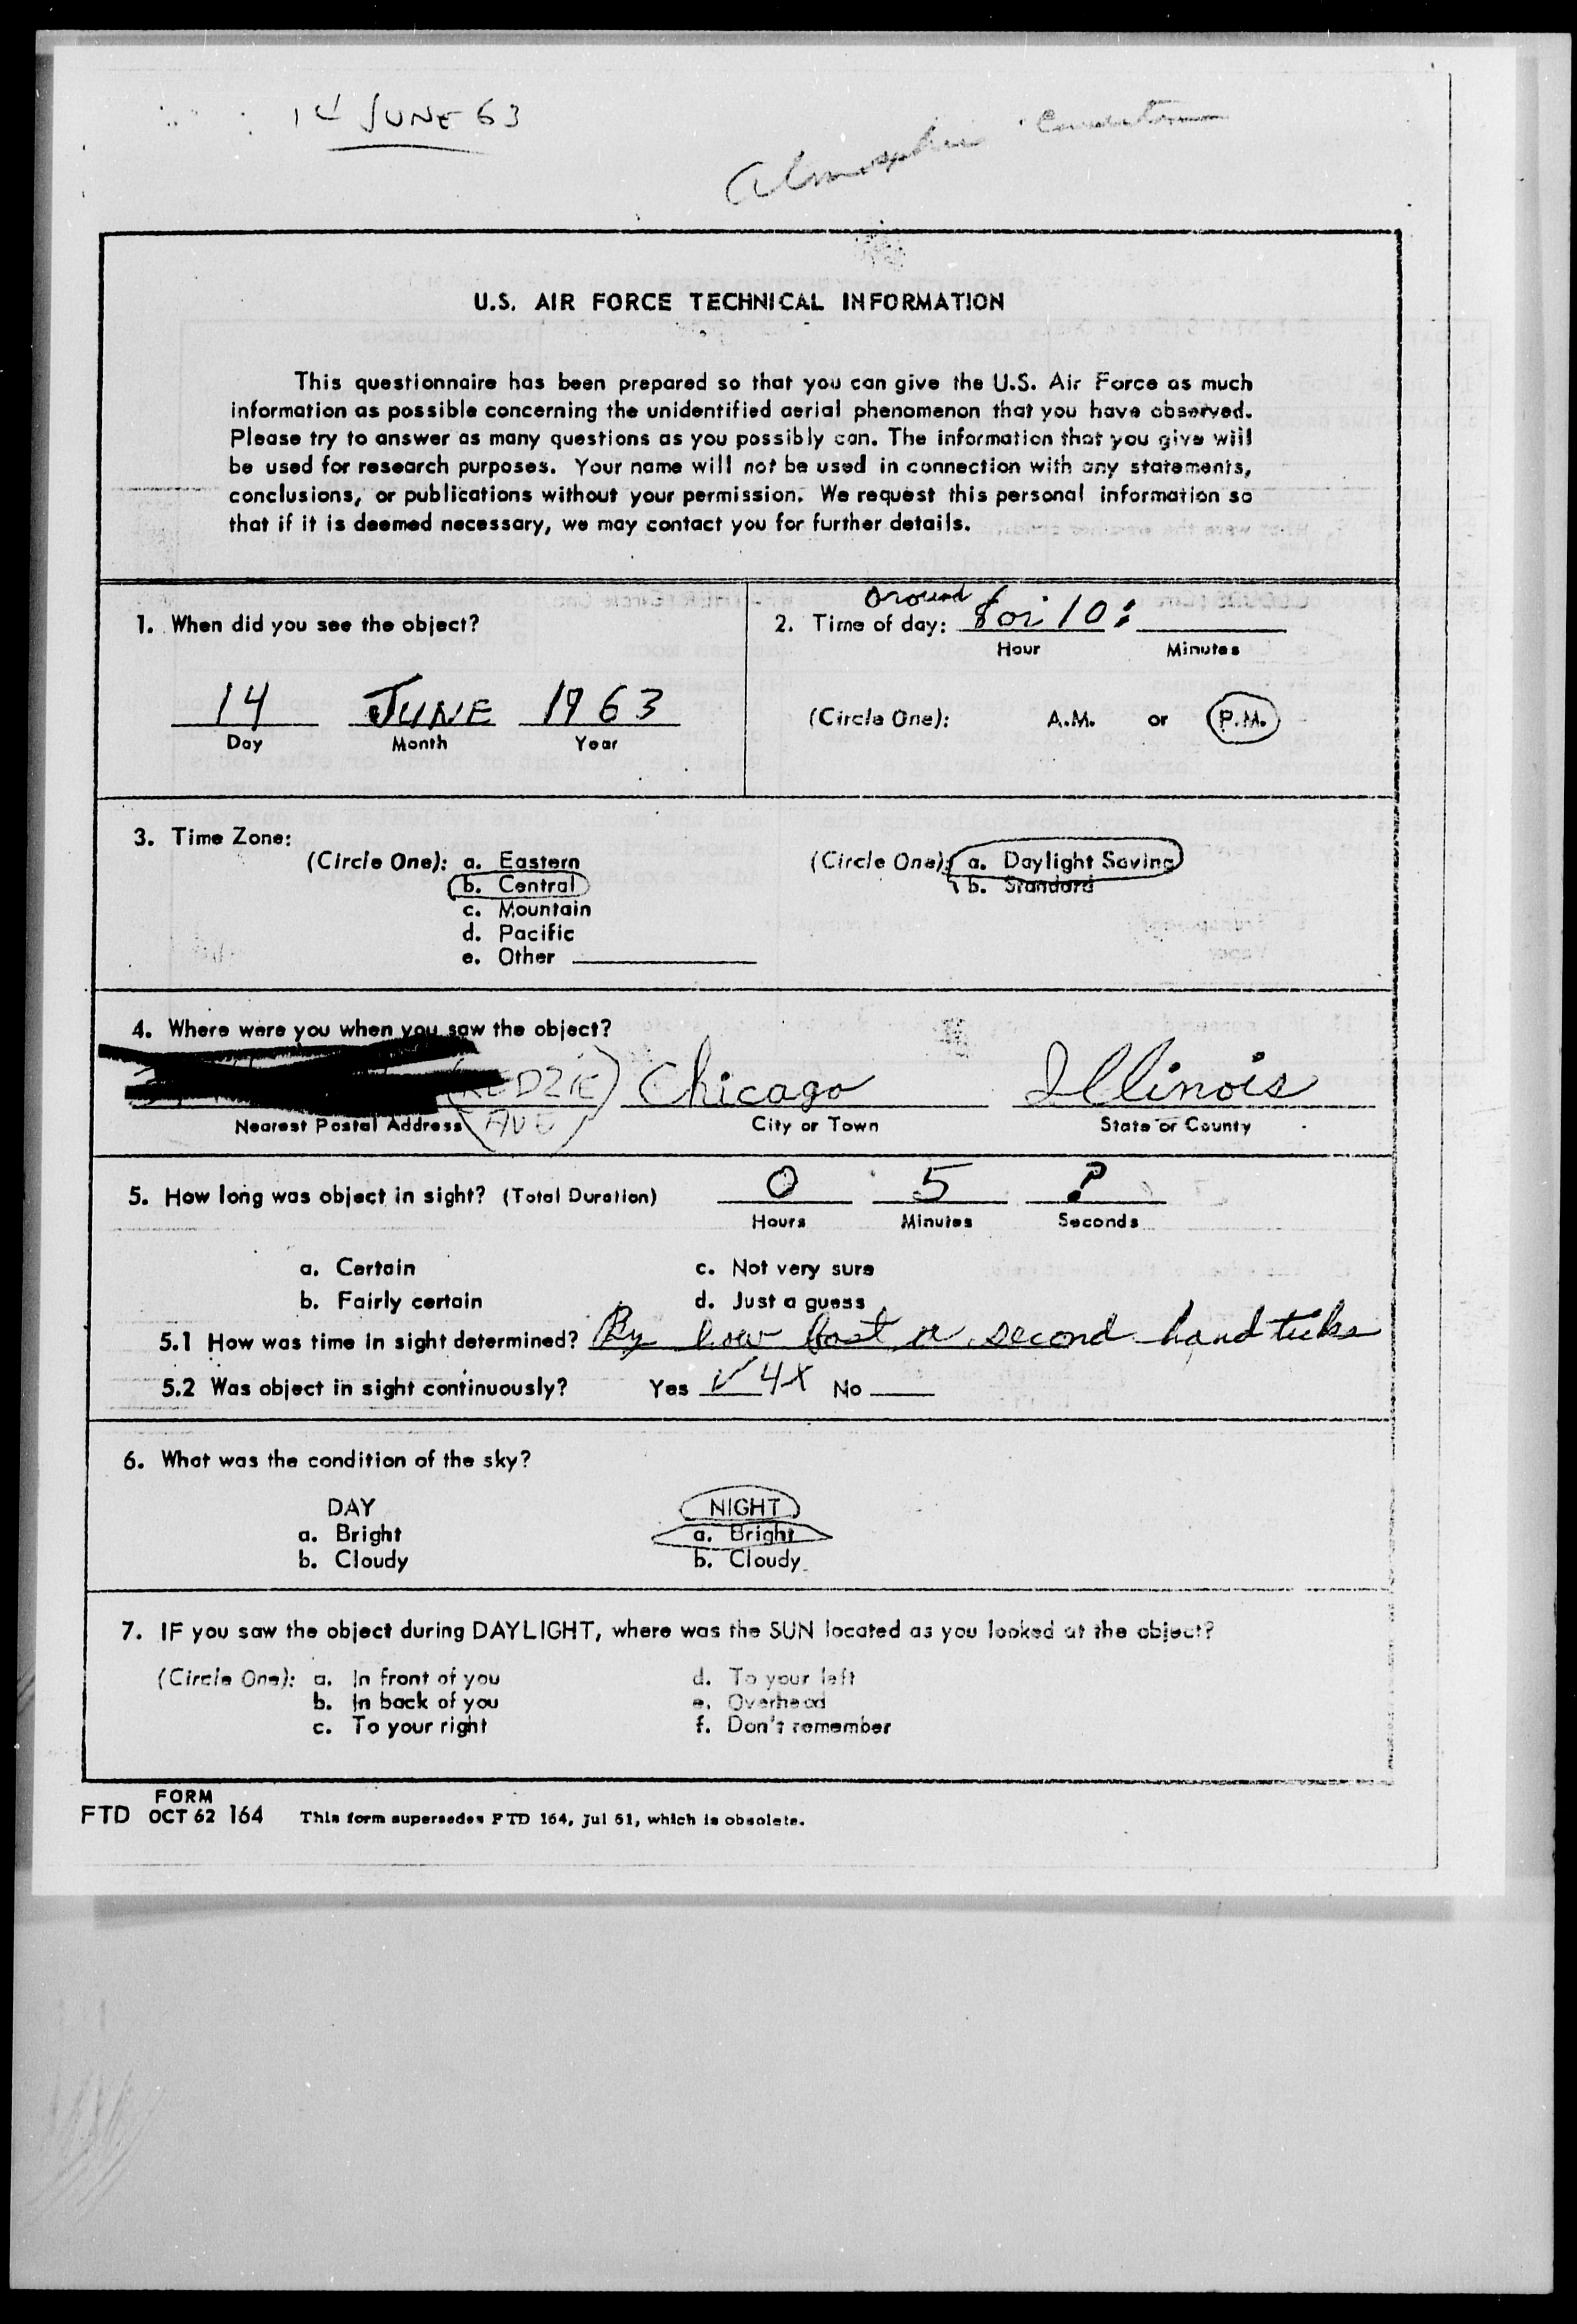 14 JUNE 63
U.S. AIR FORCE TECHNICAL INFORMATION
This questionnaire has been prepared so that you can give the U.S. Air Force as much
information as possible concerning the unidentified aerial phenomenon that you have observed.
Please try to answer as many questions as you possibly can. The information that you give will
be used for research purposes. Your name will not be used in connection with any statements,
conclusions, or publications without your permission. We request this personal information so
that if it is deemed necessary, we may contact you for further details.
1. When did you see the object?
14 JUNE 1963
Day Month Year
around
2. Time of day: 8 or 10 :
Hour Minutes
(Circle One): A.M. or P.M.
3. Time Zone:
(Circle One): a. Eastern
b. Central
c. Mountain
d. Pacific
e. Other
(Circle One): a. Daylight Saving
b. Standard
4. Where were you when you saw the object?
(KEDZIE AVE) Chicago Illinois
Nearest Postal Address City or Town State or County
5. How long was object in sight? (Total Duration) 0 5 ?
Hours Minutes Seconds
a. Certain c. Not very sure
b. Fairly certain d. Just a guess
5.1 How was time in sight determined? By how fast a second hand ticks
5.2 Was object in sight continuously? Yes ✓ 4X No
6. What was the condition of the sky?
DAY NIGHT
a. Bright a. Bright
b. Cloudy b. Cloudy
7. IF you saw the object during DAYLIGHT, where was the SUN located as you looked at the object?
(Circle One): a. In front of you d. To your left
b. In back of you e. Overhead
c. To your right f. Don't remember
FORM
FTD OCT 62 164 This form supersedes FTD 164, Jul 61, which is obsolete.